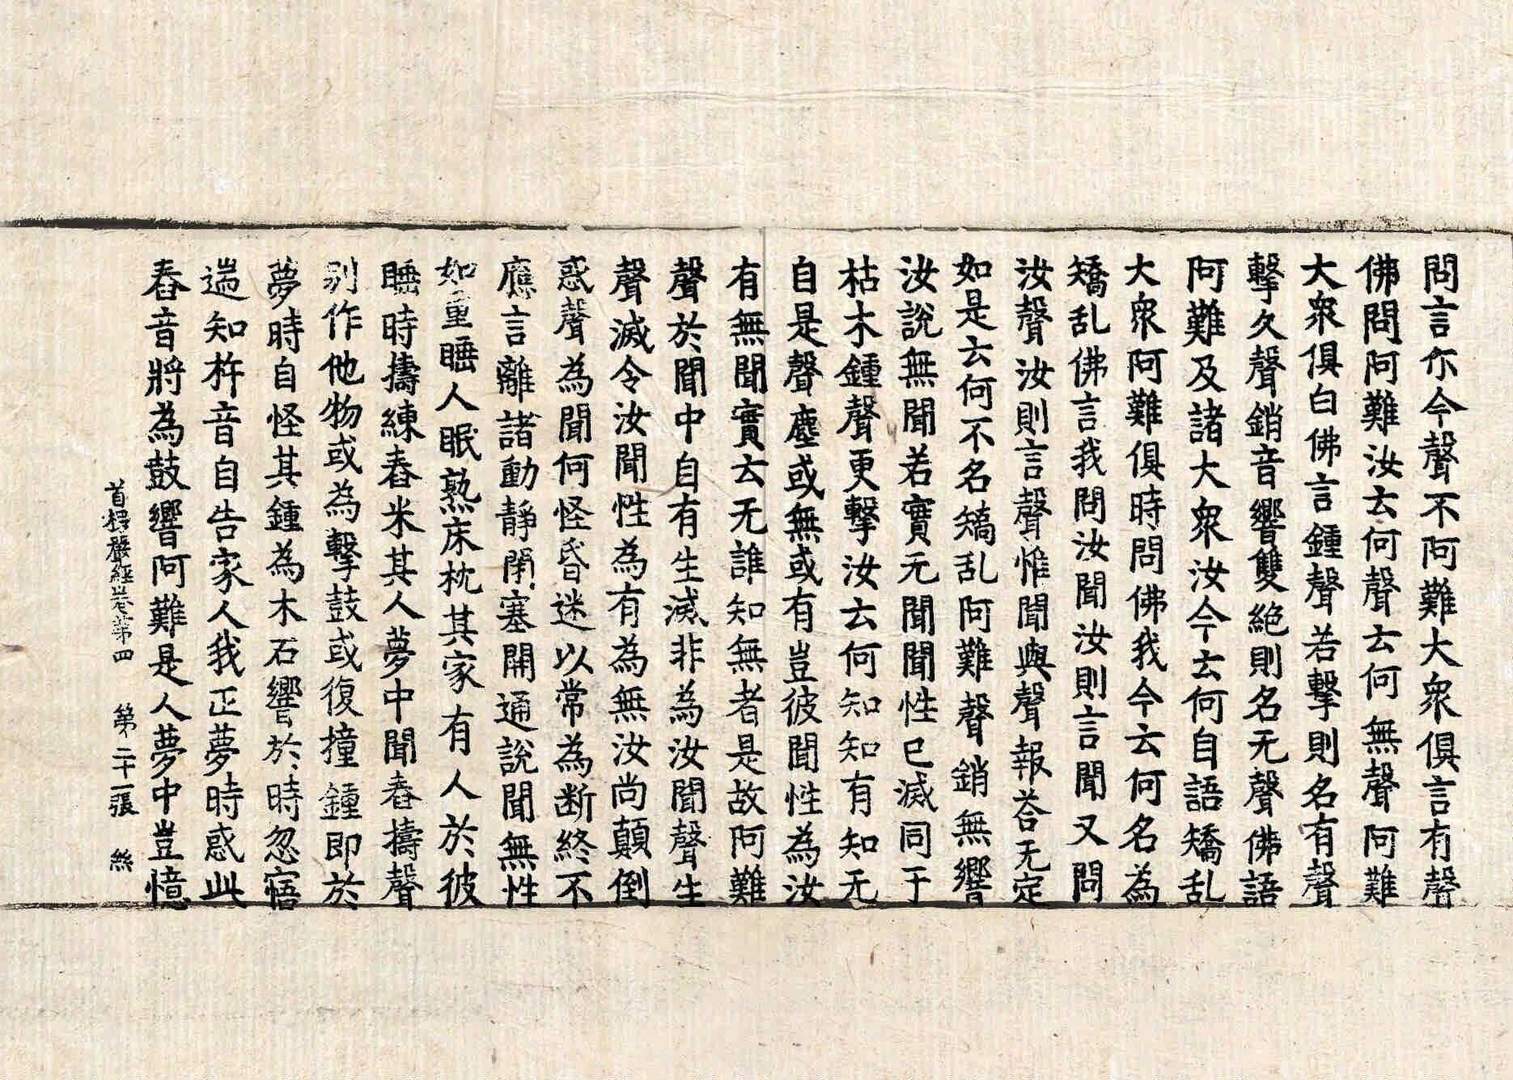 問言尔今聲不阿難大衆俱言有聲
佛問阿難汝云何聲云何無聲阿難
大衆俱白佛言鍾聲若擊則名有聲
擊久聲銷音響雙絶則名无聲佛語
阿難及諸大衆汝今云何自語矯乱
大衆阿難俱時問佛我今云何名為
矯乱佛言我問汝聞汝則言聞又問
汝聲汝則言聲惟聞與聲報荅无定
如是云何不名矯乱阿難聲銷無響
汝說無聞若實无聞聞性已滅同于
枯木鍾聲更擊汝云何知知有知无
自是聲塵或無或有豈彼聞性為汝
有無聞實云无誰知無者是故阿難
聲於聞中自有生滅非為汝聞聲生
聲滅令汝聞性為有為無汝尚顛倒
惑聲為聞何怪昏迷以常為断終不
應言離諸動靜閉塞開通說聞無性
如重睡人眠熟床枕其家有人於彼
睡時擣練舂米其人夢中聞舂擣聲
别作他物或為擊鼓或復撞鍾即於
夢時自怪其鍾為木石響於時忽寤
遄知杵音自告家人我正夢時惑此
舂音將為鼓響阿難是人夢中豈憶
首楞嚴經卷第四 第二十一張 絲